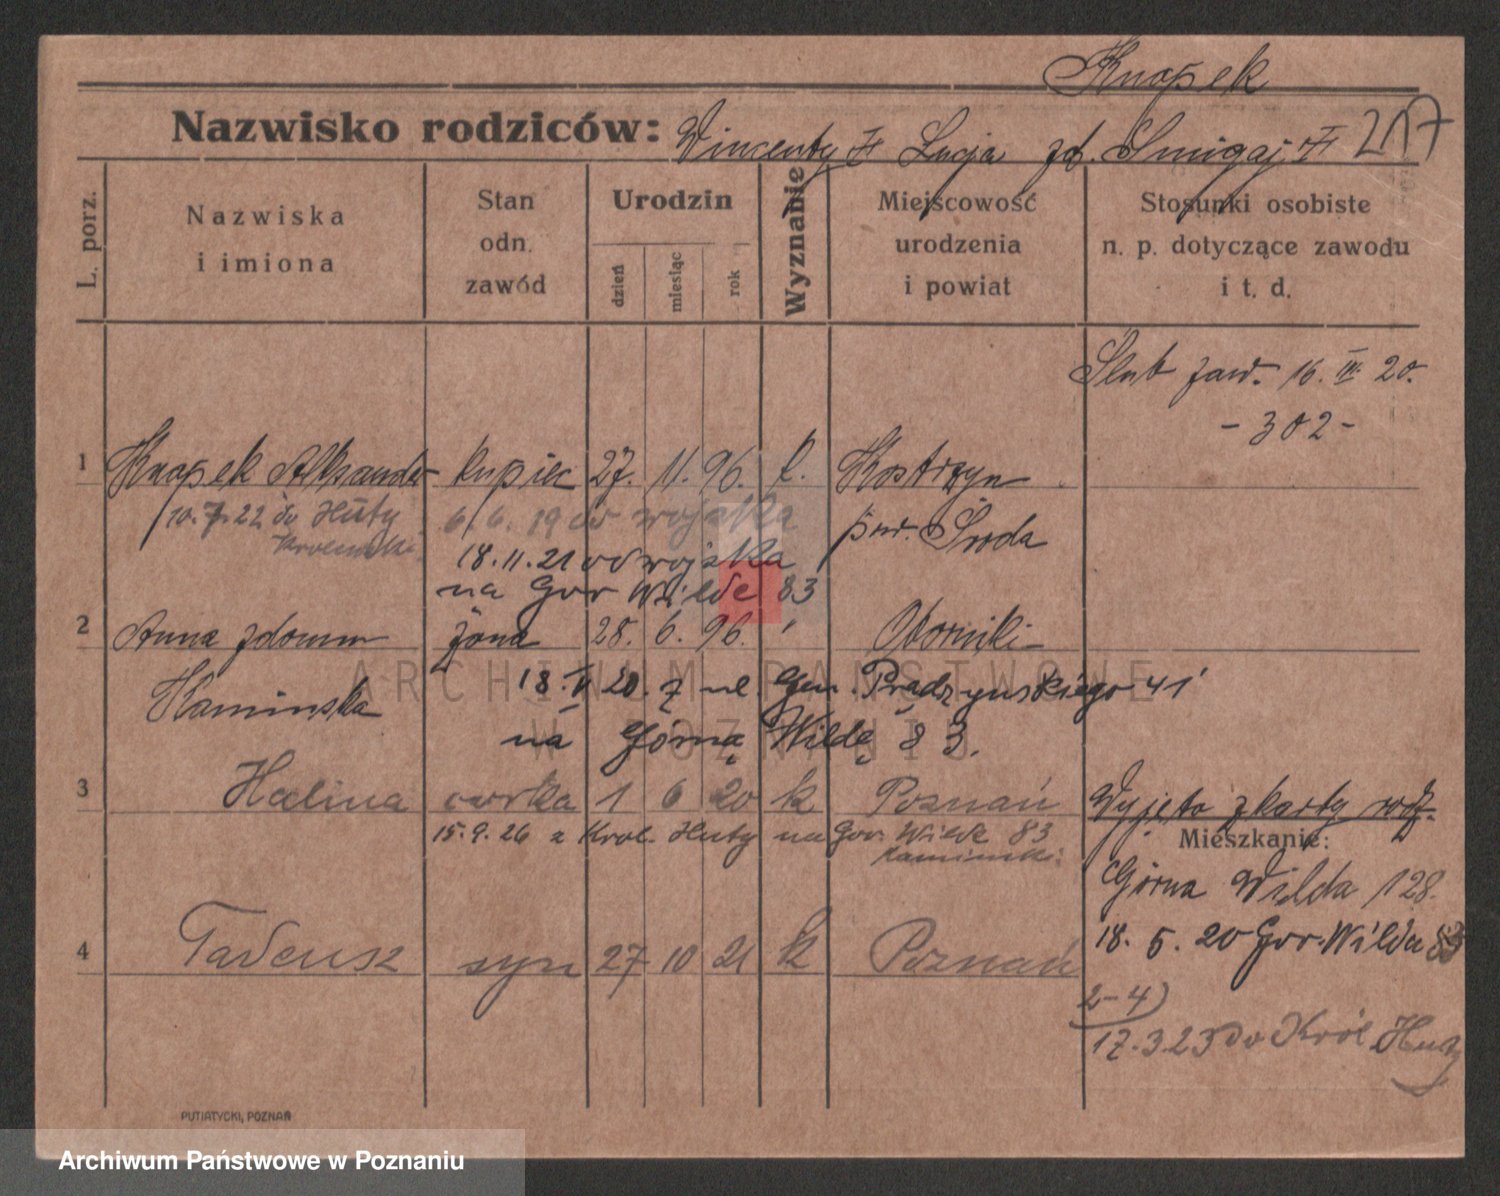 Knapek
Nazwisko rodziców: Wincenty Łucja zd. Śmigaj 217
L. porz.
Nazwiska i imiona
Stan odn. zawód
Urodzin
dzień miesiąc rok
Wyznanie
Miejscowość urodzenia i powiat
Stosunki osobiste n. p. dotyczące zawodu i t. d.
Ślub zaw. 16. III. 20.
- 302 -
1 Knapek Aleksander kupiec 27. 11. 96. k. Kostrzyn
10. 7. 22 do Huty 6. 6. 19 od wojska pow. Środa
Królewskiej
18. 11. 21 od wojska
na Gór Wilde 83
2 Anna z domu żona 28. 6. 96. Oborniki
Kaminska
18. V 20. z ul. Gen. Prądzyńskiego 41
na Górną Wildę 83.
3 Halina córka 1 6 20 k Poznań Wyjęto z karty rodz.
15. 9. 26 z Król. Huty na Gór. Wilde 83
Kaminski
Mieszkanie:
Górna Wilda 128.
18. 5. 20 Gór. Wilda 83
4 Tadeusz syn 27 10 21 k Poznań
2-4)
17. 3. 23 do Król. Huty
PUTIATYCKI, POZNAŃ
ARCHIWUM PAŃSTWOWE
W POZNANIU
Archiwum Państwowe w Poznaniu